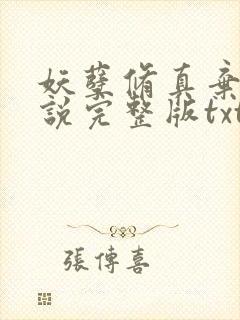 妖孽脩真棄
說完整版txt
張傳喜